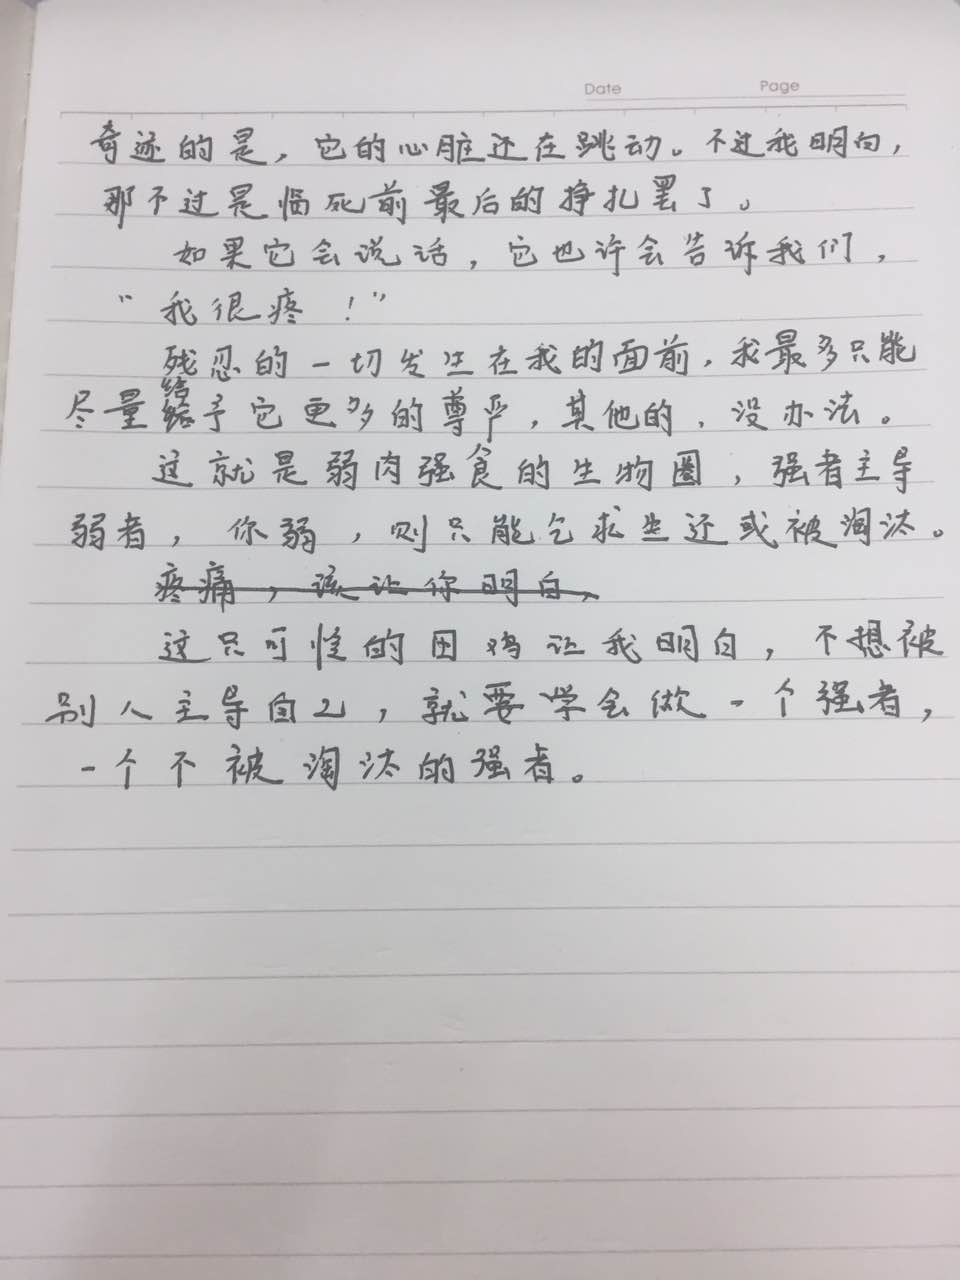 Date Page
奇迹的是，它的心脏还在跳动。不过我明白，
那不过是临死前最后的挣扎罢了。
如果它会说话，它也许会告诉我们，
“我很疼！”
残忍的一切发生在我的面前，我最多只能
尽量给予它更多的尊严，其他的，没办法。
这就是弱肉强食的生物圈，强者主导
弱者，你弱，则只能乞求生还或被淘汰。
疼痛，该让你明白，
这只可怜的田鸡让我明白，不想被
别人主导自己，就要学会做一个强者，
一个不被淘汰的强者。